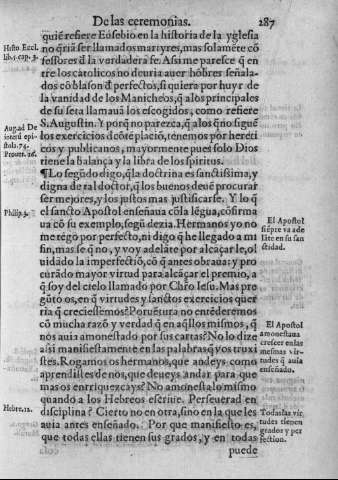 De las ceremonias. 287
quiē refiere Eusebio en la historia de la yglesia
Histo. Eccl. lib. 5. cap. 3.
no q̄riā ser llamados martyres, mas solamēte cō
fessores d̄ la verdadera fe. Assi me parece q̄ en
tre los catolicos no deuria auer hōbres señala-
dos cō blason d̄ perfectos, si quiera por huyr de
la vanidad de los Manicheos, q̄ a los principales
de su seta llamauā los escogidos, como refiere
Aug. ad De
S. Augustin. Y porq̄ no parezca, q̄ a los q̄ no siguē
epi-
stola. 74.
Prouer. 16.
los exercicios d̄ este plaçiō, tenemos por hereti
cos y publicanos, mayormente pues solo Dios
tiene la balança y la libra de los spiritus.
¶Lo segūdo digo, q̄ la doctrina es sanctissima, y
digna de ral doctor, q̄ los buenos deuē procurar
ser mejores, y los justos mas justificarse. Y lo q̄
Philip. 3.
el sancto Apostol enseñaua cō la lēgua, cōfirma
El Apostol siēpre va ade lāte en su san ctidad.
ua cō su exemplo, segū dezia. Hermanos yo no
me tēgo por perfecto, ni digo q̄ he llegado a mi
fin, mas se q̄ no, y voy adelāte por alcāçarle, ol
uidado la imperfectiō, cō q̄ antes obraua: y pro
curādo mayor virtud para alcāçar el premio, a
q̄ soy del cielo llamado por Chr̄o Iesu. Mas pre
gūto os, en q̄ virtudes y sanctos exercicios quer
ria q̄ creciessemos? Porvētura no entēderemos
El Apostol amonestaua crescer en las mesmas vir- tudes q̄ auia enseñado.
cō mucha razō y verdad q̄ en aq̄llos mismos, q̄
nos auia amonestado por sus cartas? No lo dize
assi manifiestamente en las palabras q̄ vos truxi
stes. Rogamos os hermanos, que andeys como
aprendistes de nos, que deueys andar para que
mas os enrriquezcays? No amonesta lo mismo
quando a los Hebreos escriue. Perseuerad en
Hebre. 12.
disciplina? Cierto no en otra, sino en la que les
Todas las vir tudes tienen grados y per fection.
auia antes enseñado. Por que manifiesto es,
que todas ellas tienen sus grados, y en todas
puede